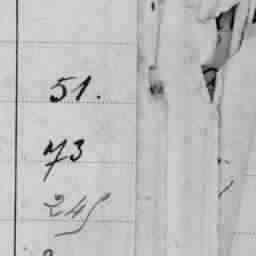 51.
73
245